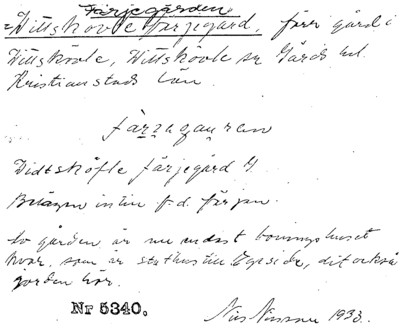 Färjegården
= Vittskövle färjegård, förr gård i
Vittskövle, Vittskövle sn Gärds hd.
Kristianstads län.
färjegauren
Vidtsköfle färjegård G.
Belägen intill f.d. färjan.
Av gården är nu endast boningshuset
kvar, som är stathus till Egeside, dit också
jorden hör.
Nr 5340.
Nils Nilsson 1933.